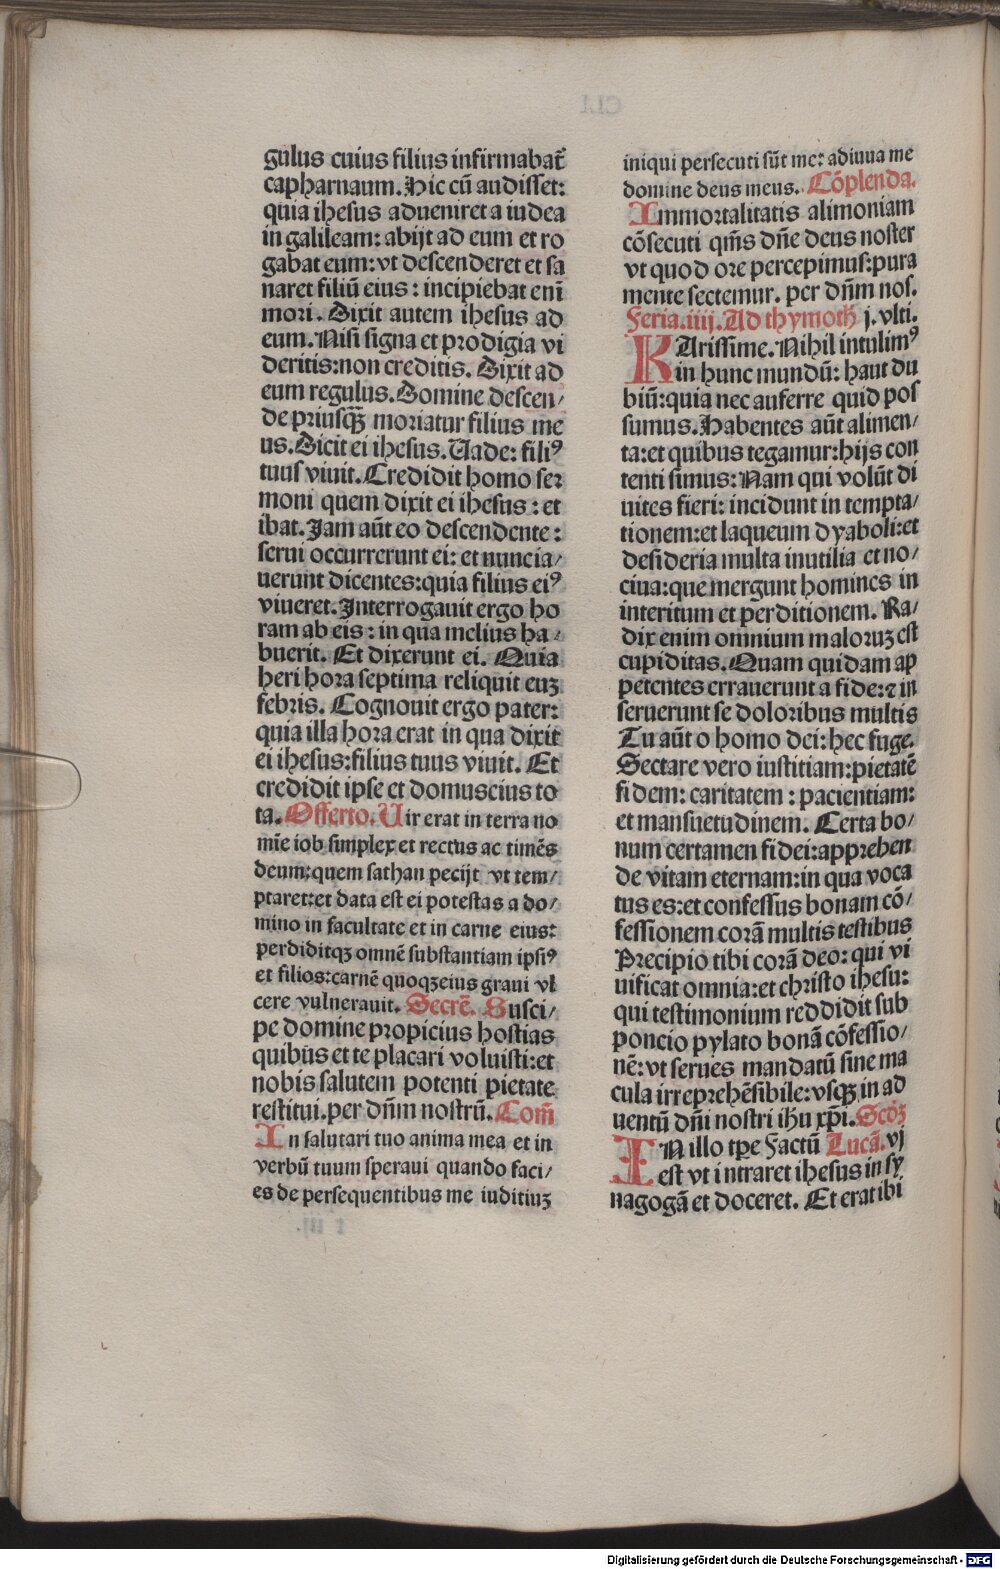 gulus cuius filius infirmabat᷑
capharnaum. Hic cū audisset:
quia ihesus adueniret a iudea
in galileam: abijt ad eum et ro
gabat eum: vt descenderet et sa
naret filiū eius: incipiebat enī
mori. Dixit autem ihesus ad
eum. Nisi signa et prodigia vi
deritis: non creditis. Dixit ad
eum regulus. Domine descen/
de priusqꝫ moriatur filius me
us. Dicit ei ihesus. Uade: filiꝰ
tuus viuit. Credidit homo ser
moni quem dixit ei ihesus: et
ibat. Jam aūt eo descendente:
serui occurrerunt ei: et nuncia/
uerunt dicentes: quia filius eiꝰ
viueret. Interrogauit ergo ho
ram ab eis: in qua melius ha/
buerit. Et dixerunt ei. Quia
heri hora septima reliquit euꝫ
febris. Cognouit ergo pater:
quia illa hora erat in qua dixit
ei ihesus: filius tuus viuit. Et
credidit ipse et domus eius to
ta. Offerto. Uir erat in terra no
mīe iob simplex et rectus ac timēs
deum: quem sathan pecijt vt tem/
ptaret: et data est ei potestas a do/
mino in facultate et in carne eius:
perdiditqꝫ omnē substantiam ipsiꝰ
et filios: carnē quoqꝫ eius graui vl
cere vulnerauit. Secrē. Susci/
pe domine propicius hostias
quibus et te placari voluisti: et
nobis salutem potenti pietate
restitui. per dn̄m nostrū. Com̄
In salutari tuo anima mea et in
verbū tuum speraui quando faci/
es de persequentibus me iuditiuꝫ
iniqui persecuti sūt me: adiuua me
domine deus meus. Cōplenda.
Immortalitatis alimoniam
cōsecuti qm̄s dn̄e deus noster
vt quod ore percepimus: pura
mente sectemur. per dn̄m nos.
Feria. iiij. Ad thymoth j. vlti.
KArissime. Nihil intulimꝰ
in hunc mundū: haut du
biū: quia nec auferre quid pos
sumus. Habentes aūt alimen/
ta: et quibus tegamur: hijs con
tenti simus: Nam qui volūt di
uites fieri: incidunt in tempta/
tionem: et laqueum dyaboli: et
desideria multa inutilia et no/
ciua: que mergunt homines in
interitum et perditionem. Ra/
dix enim omnium maloruꝫ est
cupiditas. Quam quidam ap
petentes errauerunt a fide: ⁊ in
seruerunt se doloribus multis
Tu aūt o homo dei: hec fuge.
Sectare vero iustitiam: pietatē
fidem: caritatem: pacientiam:
et mansuetudinem. Certa bo/
num certamen fidei: apprehen
de vitam eternam: in qua voca
tus es: et confessus bonam cō/
fessionem corā multis testibus
Precipio tibi corā deo: qui vi
uificat omnia: et christo ihesu:
qui testimonium reddidit sub
poncio pylato bonā cōfessio/
nē: vt serues mandatū sine ma
cula irreprehēsibile: vsqꝫ in ad
uentū dn̄i nostri ihu xp̄i. Scdꝫ
IN illo tp̄e Factū Lucā. vj
est vt intraret ihesus in sy
nagogā et doceret. Et erat ibi
Digitalisierung gefördert durch die Deutsche Forschungsgemeinschaft - DFG